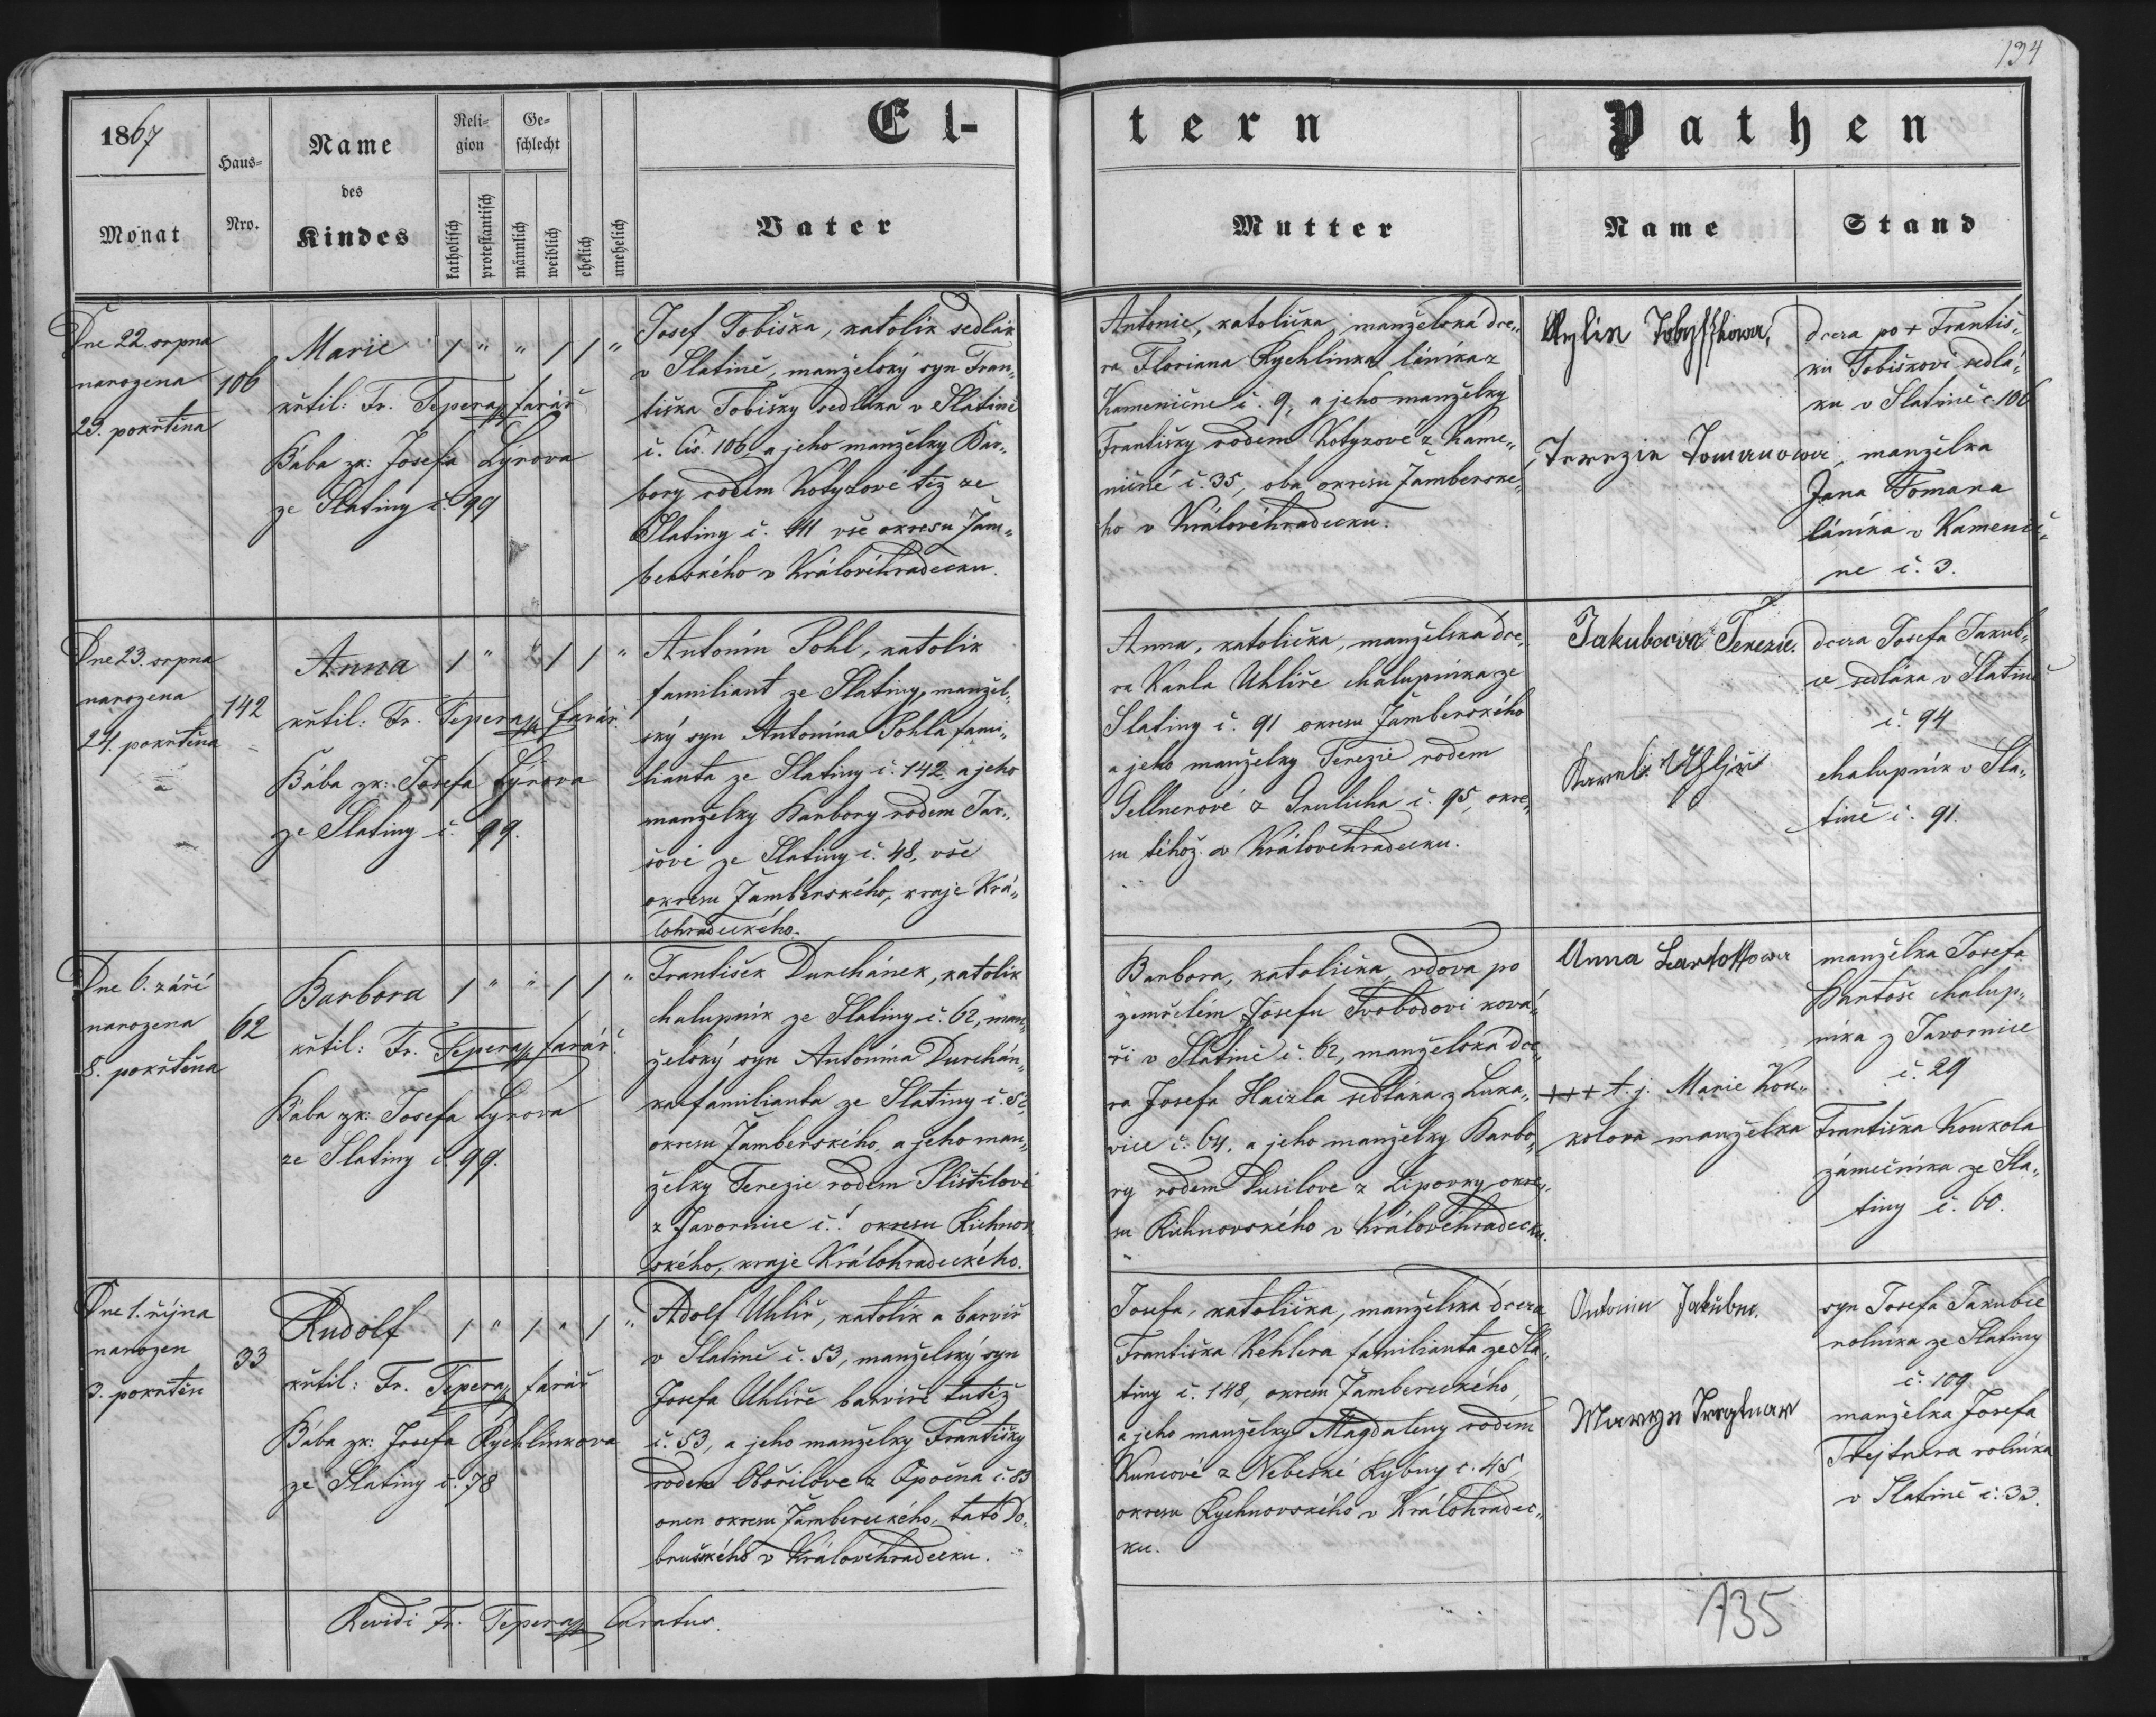 134
1867
Monat
Haus-
Nro.
Name
des
Kindes
Reli-
gion
katholisch
protestantisch
Ge-
schlecht
männlich
weiblich
ehelich
unehelich
El-
Vater
tern
Mutter
Pathen
Name
Stand
Dne 22. srpna
narozena
23. pokřtěna
106
Marie / " " / / "
křtil: Fr. Tepera farář
Bába zk: Josefa Lyrova
ze Slatiny č. 99
Josef Tobiška, katolík sedlák
v Slatině, manželský syn Fran„
tiška Tobišky sedláka v Slatině
č. čis. 106 a jeho manželky Bar„
bory rodem Kotyzové též ze
Slatiny č. 41 vše okresu Žam„
berského v Královéhradecku.
Antonie, katolička, manželská dce„
ra Floriana Rychlinka láníka z
Kameničné č. 9, a jeho manželky
Františky rodem Kotyzové z Kame„
ničné č. 35, oba okresu Žamberské„
ho v Královéhradecku.
Tobysskowa,
dcera po + Františ„
ku Tobiškovi sedlá„
ku v Slatině č. 106
Terezie Tomanowa,
manželka
Jana Tomana
láníka v Kamenič„
né č. 3.
Dne 23. srpna
narozena
24. pokřtěna
142
Anna / " " / / "
křtil: Fr. Tepera farář.
Bába zk: Josefa Lyrova
ze Slatiny č. 99.
Antonín Pohl, katolík
familiant ze Slatiny, manžel„
ský syn Antonína Pohla fami„
lianta ze Slatiny č. 142, a jeho
manželky Barbory rodem Jar„
šové ze Slatiny č. 48, vše
okresu Žamberského, kraje Krá„
lohradeckého.
Anna, katolička, manželská dce„
ra Karla Uhlíře chalupníka ze
Slatiny č. 91 okresu Žamberského
a jeho manželky Terezie rodem
Gellnerové z Grulicha č. 95, okre„
su téhož v Královéhradecku.
Jakubcova Terezie.
dcera Josefa Jakub„
ce sedláka v Slatině
č. 94
Karel Uhljř
chalupník v Sla„
tině č. 91.
Dne 6. září
narozena
8. pokřtěna
62
Barbora / " " / / "
křtil: Fr. Tepera farář.
Bába zk: Josefa Lyrova
ze Slatiny č. 99.
František Durchánek, katolík
chalupník ze Slatiny č. 62, man„
želský syn Antonína Durchán„
ka familianta ze Slatiny č. 52,
okresu Žamberského, a jeho man„
želky Terezie rodem Plištilové
z Javornice č. ! okresu Richnov
ského, kraje Králohradeckého.
Barbora, katolička, vdova po
zemřelém Josefu Svobodovi ková„
ři v Slatině č. 62, manželská dce„
ra Josefa Haizla sedláka z Luka„
vice č. 64, a jeho manželky Barbo„
ry rodem Dusilove z Lipovky okre„
su Richnovského v Královéhradecku.
Anna Bartossowa
manželka Josefa
Bartoše chalup„
níka z Javornice
č. 29
+++ t. j. Marie Kou„
kolova manželka
Františka Koukola
zámečníka ze Sla„
tiny č. 60.
Dne 1. října
narozen
3. pokřtěn
33
Rudolf / " / " / "
křtil: Fr. Tepera farář
Bába zk: Josefa Rychlinkova
ze Slatiny č. 78
Adolf Uhlíř, katolík a barvíř
v Slatině č. 53, manželský syn
Josefa Uhlíře barvíře tutéž
č. 53, a jeho manželky Františky
rodem Obořilove z Opočna č. 83
onen okresu Žambereckého, tato Do„
brušského v Královéhradecku.
Josefa, katolička, manželská dcera
Františka Kehlera familianta ze Sla„
tiny č. 148, okresu Žambereckého,
a jeho manželky Magdaleny rodem
Kuncové z Nebeské Rybny č. 45,
okresu Rychnovského v Králohradec„
ku.
Antonin Jakubec.
syn Josefa Jakubce
rolníka ze Slatiny
č. 109
manželka Josefa
Trejtnara rolníka
v Slatině č. 33.
Revidi Fr. Tepera Curatus.
135